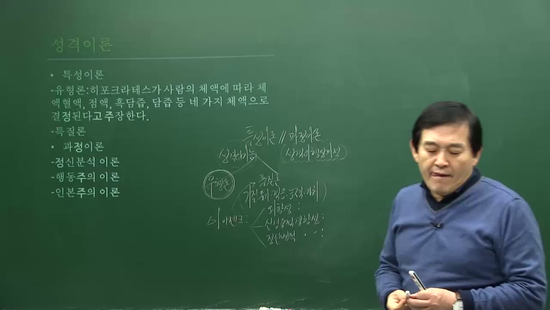 성격이론
• 특성이론
-유형론:히포크라테스가 사람의 체액에 따라 체
액혈액, 점액, 흑담즙, 담즙 등 네 가지 체액으로
결정된다고 주장한다.
-특질론
• 과정이론
-정신분석 이론
-행동주의 이론
-인본주의 이론
특성이론 // 과정이론
아이젠크
외향성 :